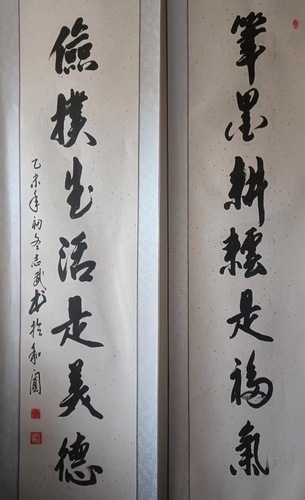 筆墨耕耘是福氣
儉樸生活是美德
乙未年初冬志武書於和園